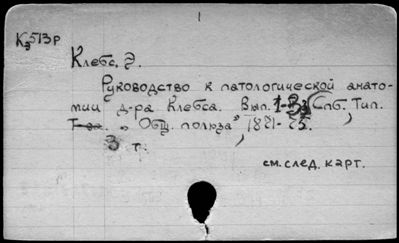 Клебс, Э.
Руководство к патологической анато-
мии д-ра Клебса. Вып. 1-3, Спб. Тип.
Т-ва. „Общ. польза",
3 т.
см. след. карт.